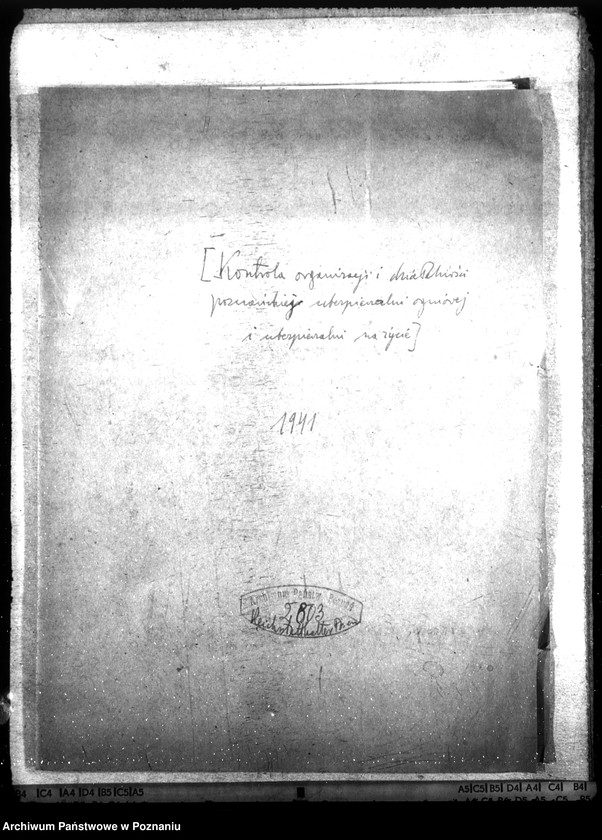 [Kontrola organizacji i działalności
poznańskiej ubezpieczalni ogniowej
i ubezpieczalni na życie]
1941
Archiwum Państw. Poznań
2803
Reichsstatthalter
B4 C4 A4 D4 B5 C5 A5
A5 C5 B5 D4 A4 C4 B4
Archiwum Państwowe w Poznaniu